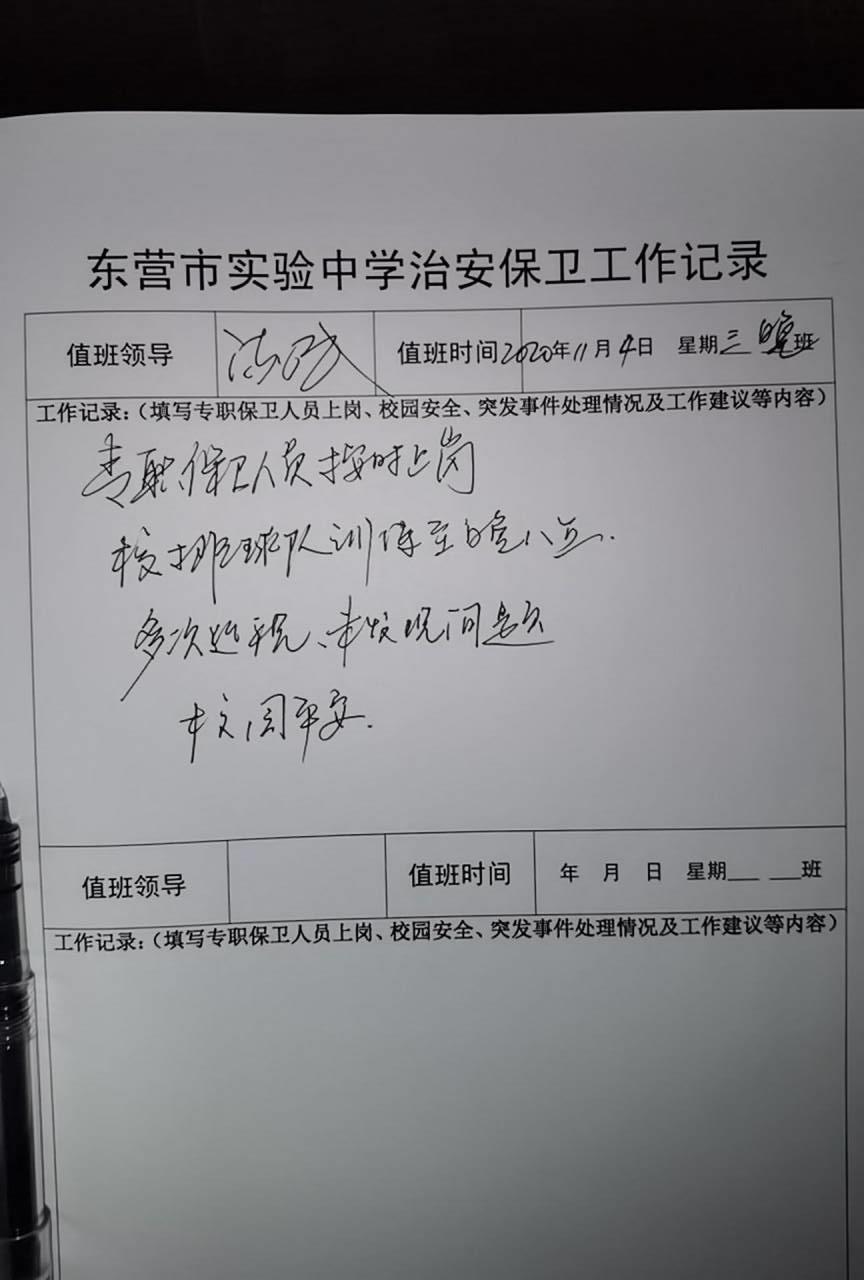 东营市实验中学治安保卫工作记录
值班领导 值班时间 2020年11月4日 星期三 晚班
工作记录：（填写专职保卫人员上岗、校园安全、突发事件处理情况及工作建议等内容）
专职保卫人员按时上岗
校排球队训练至晚八点.
多次巡视、未发现问题
校园平安.
值班领导 值班时间 年 月 日 星期___ ___班
工作记录：（填写专职保卫人员上岗、校园安全、突发事件处理情况及工作建议等内容）